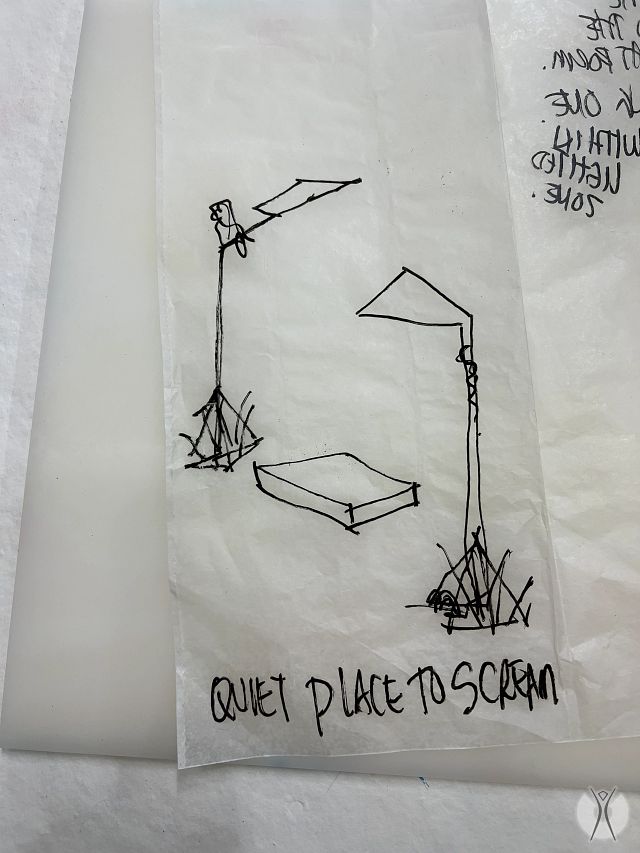 THE
ONE.
WITHIN
LIGHTED
ZONE.
QUIET PLACE TO SCREAM